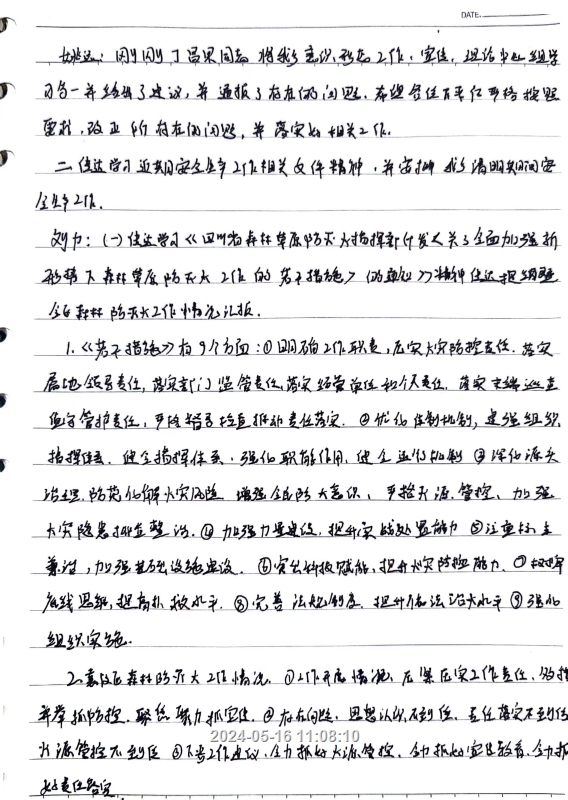 DATE.
同志 将我乡意识形态工作、宣传、理论中心组学
习 一并 了建议，并通报了存在的问题。希望各位 严格按照
要求，改正所存在的问题，并落实好相关工作。
二、传达学习近期安全生产工作相关文件精神，并安排我乡清明期间安
全生产工作。
刘力：(一)传达学习《四川省森林草原防灭火指挥部办公室关于全面加强新
形势下森林草原防灭火工作的若干措施》 精神
全 森林防灭火工作情况汇报。
1.《若干措施》有9个方面：①明确工作职责，压实火灾防控责任。落实
属地领导责任，落实部门监管责任，落实经营单位和个人责任，落实
管护责任，严格督导检查推动责任落实。②优化体制机制，建强组织
指挥体系。健全指挥体系，强化职能作用，健全运行机制 ③深化源头
治理，防范化解火灾风险 增强全民防火意识，严控火源管控，加强
火灾隐患排查整治。④加强力量建设，提升实战处置能力 ⑤注重标本
兼治，加强基础设施建设。⑥突出科技赋能，提升火灾防控能力。⑦
底线思维，提高扑救水平。⑧完善法规制度，提升依法治火水平 ⑨强化
组织实施。
2. 森林防灭火工作情况。①工作开展情况，压紧压实工作责任，
并举抓防控，联络聚力抓宣传。②存在问题，思想认识不到位，责任落实不到位
火源管控不到位 ③下步工作建议，全力抓好火源管控，全力抓好宣传教育，全力抓
好责任落实
2024-05-16 11:08:10